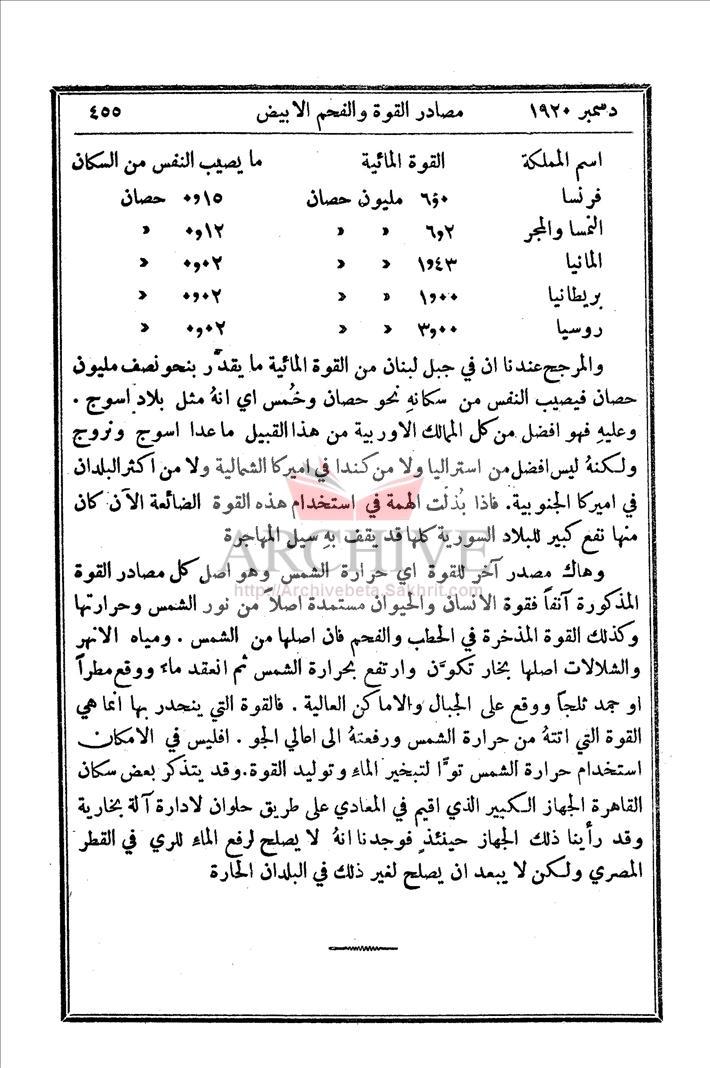 دسمبر ١٩٢٠ مصادر القوة والفحم الابيض ٤٥٥
اسم المملكة القوة المائية ما يصيب النفس من السكان
فرنسا ٦٠و مليون حصان ١٥و٠ حصان
النمسا والمجر ٦و٢ « « ١٢و٠ «
المانيا ١و٤٣ « « ٠٢و٠ «
بريطانيا ١و٠٠ « « ٠٢و٠ «
روسيا ٣و٠٠ « « ٠٢و٠ «
والمرجح عندنا ان في جبل لبنان من القوة المائية ما يقدَّر بنحو نصف مليون
حصان فيصيب النفس من سكانهِ نحو حصان وخُمس اي انهُ مثل بلاد اسوج .
وعليهِ فهو افضل من كل الممالك الاوربية من هذا القبيل ما عدا اسوج ونروج
ولكنهُ ليس افضل من استراليا ولا من كندا في اميركا الشمالية ولا من اكثر البلدان
في اميركا الجنوبية. فاذا بُذلت الهمة في استخدام هذه القوة الضائعة الآن كان
منها نفع كبير للبلاد السورية كلها قد يقف بهِ سيل المهاجرة
وهاك مصدر آخر للقوة اي حرارة الشمس وهو اصل كل مصادر القوة
المذكورة آنفاً فقوة الانسان والحيوان مستمدة اصلاً من نور الشمس وحرارتها
وكذلك القوة المذخرة في الحطب والفحم فان اصلها من الشمس . ومياه الانهر
والشلالات اصلها بخار تكوَّن وارتفع بحرارة الشمس ثم انعقد ماءً ووقع مطراً
او جمد ثلجاً ووقع على الجبال والاماكن العالية . فالقوة التي ينحدر بها انما هي
القوة التي اتتهُ من حرارة الشمس ورفعتهُ الى اعالي الجو . افليس في الامكان
استخدام حرارة الشمس توًّا لتبخير الماء وتوليد القوة. وقد يتذكر بعض سكان
القاهرة الجهاز الكبير الذي اقيم في المعادي على طريق حلوان لادارة آلة بخارية
وقد رأينا ذلك الجهاز حينئذٍ فوجدنا انهُ لا يصلح لرفع الماء للري في القطر
المصري ولكن لا يبعد ان يصلح لغير ذلك في البلدان الحارة
ARCHIVE
http://Archivebeta.Sakhrit.com